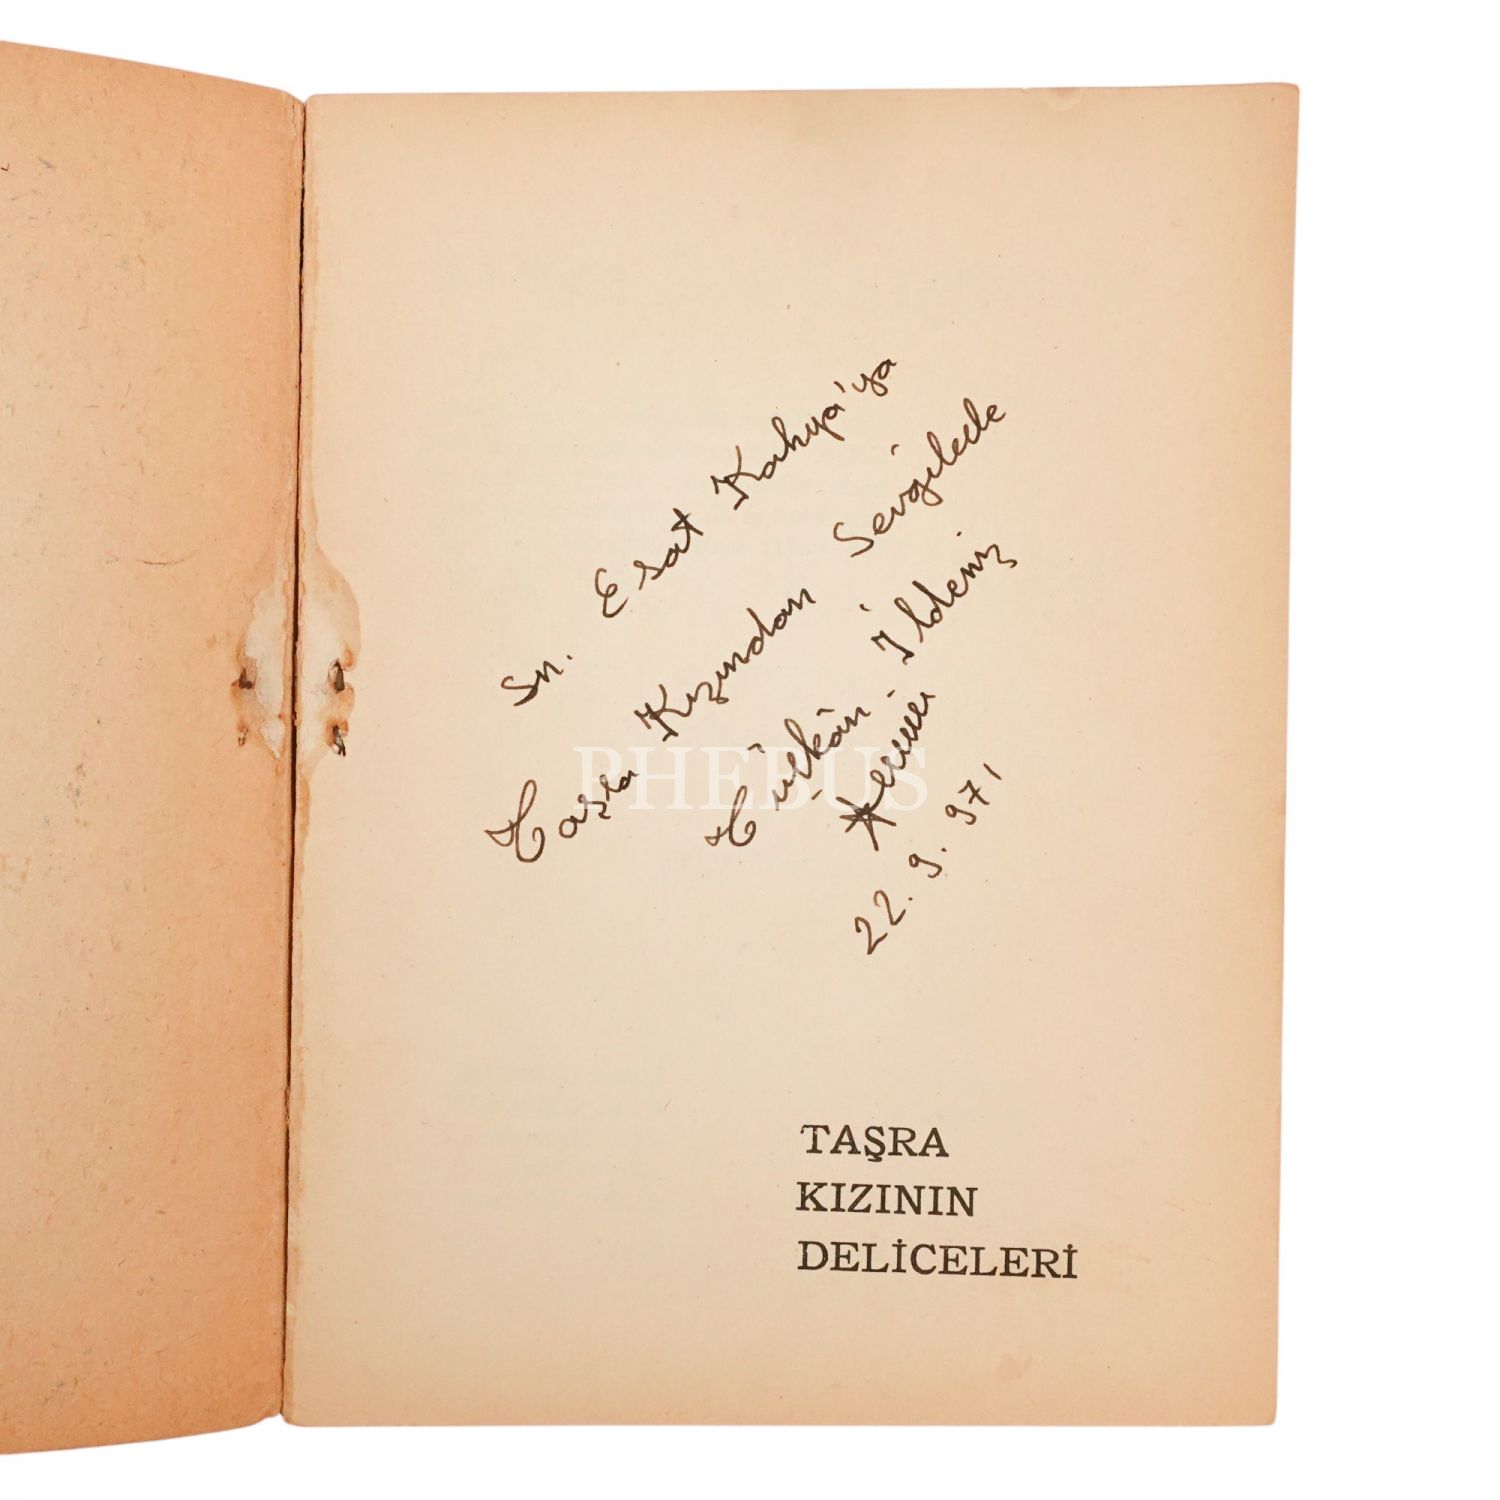 Sn. Esat Kahya'ya
Taşra Kızından Sevgilerle
Türkân İldeniz
22. 9. 971
PHEBUS
TAŞRA
KIZININ
DELİCELERİ